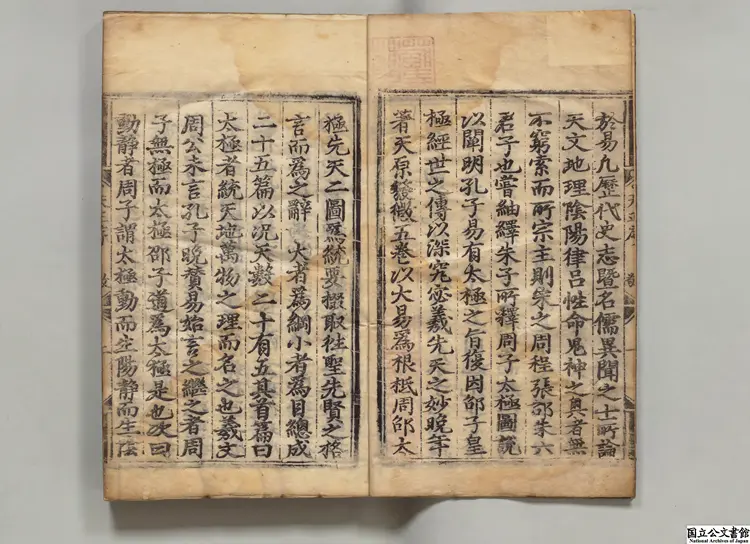 於易凡歷代史志暨名儒異聞之士所論
天文地理陰陽律呂性命鬼神之奧者無
不窮索而所宗主則朱之周程張邵朱六
君子也嘗紬繹朱子所釋周子太極圖說
以闡明孔子易有太極之旨復因邵子皇
極經世之傳以深究宓羲先天之妙晚年
著天原發微五卷以大易爲根柢周邵太
極先天二圖爲統要掇取徃聖先賢之格
言而爲之辭大者爲綱小者爲目總成
二十五篇以況天數二十有五其首篇曰
太極者統天地萬物之理而名之也羲文
周公未言孔子晚賛易始言之繼之者周
子無極而太極邵子道爲太極是也次曰
動靜者周子謂太極動而生陽靜而生陰
国立公文書館
National Archives of Japan